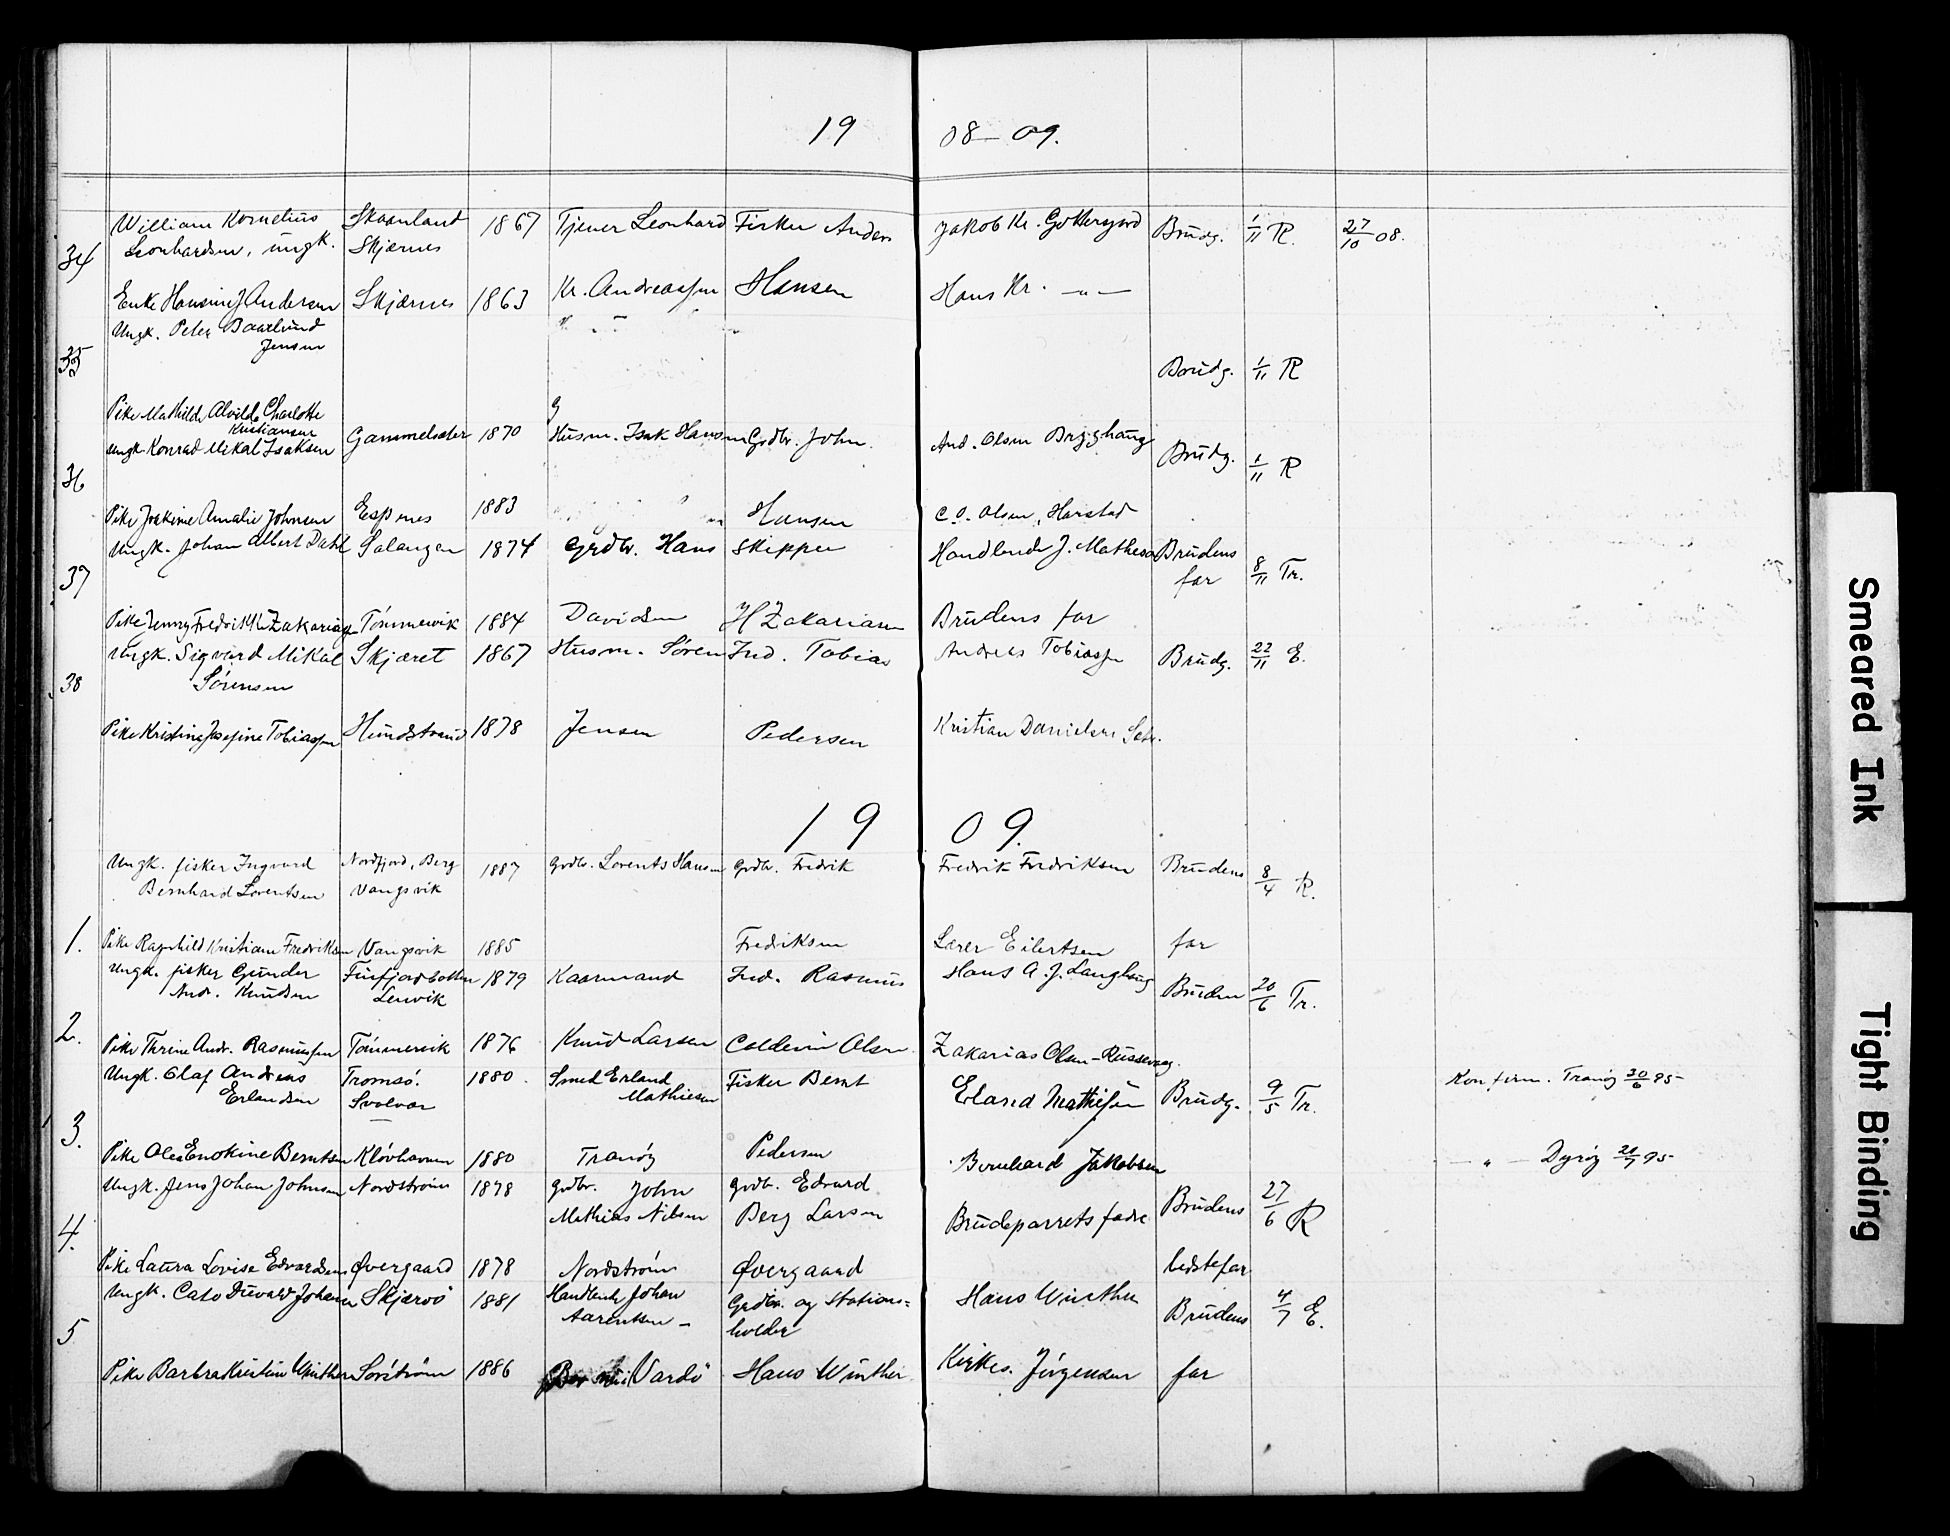 19 08-09.
William Kornelius Skaanland 1867 Tjener Leonhard Fisker Anders Jakob Kr. Gottersjord Brudg. 1/11 R. 27/10 08.
34 Leonhardsen, ungk. Skjærnes
Enke Hansine J Andersen Skjærnes 1863 Kr. Andreassen Hansen Hans Kr. -"-
Ungk. Peter Baarlund
Jensen
35 Brudg. 1/11 R
Pike Mathilde Alvilde Charlotte
Kristiansen
Ungk. Konrad Mikal Isaksen Gammelsæter 1870 Husm. Isak Hansen Grdbr. John And. Olsen Brygghaug Brudg. 1/11 R
36
Pike Joakime Amalie Johnsen Espenes 1883 Hansen C. O. Olsen, Harstad
Ungk. Johan Albert Dahl Salangen 1874 Grdbr. Hans Skipper Handlende J. Mathesen Brudens
37 far 8/11 Tr.
Pike Jenny Fredrikke Zakariassen Tömmervik 1884 Davidsen H Zakariasen Brudens far
Ungk. Sigvard Mikal Skjæret 1867 Husm. Sören Ind. Tobias Andreas Tobiassen Brudg. 22/11 E.
38 Sörensen
Pike Kristine Josefine Tobiassen Hundstrand 1878 Jensen Pedersen Kristian Danielsen
19 09.
Ungk. fisker Ingvard Nordfjord, Berg 1887 Grdbr. Lorents Hansen Grdbr. Fredrik Fredrik Fredriksen Brudens 8/4 R.
Bernhard Lorentsen Vangsvik
1. Pike Ragnhild Kristiane Fredriksen Vangsvik 1885 Fredriksen Lærer Eilertsen far
Ungk. fisker Gunder Finfjordbotten 1879 Kaarmand Ind. Rasmus Hans A. J. Langhaug Bruden 20/6 Tr.
And. Knudsen Lenvik
2. Pike Thrine Andr. Rasmussen Tömmervik 1876 Knud Larsen Olsen Zakarias Olsen - Russevaag.
Ungk. Olaf Andreas Tromsö. 1880. Smed Erland Fisker Bernt Erland Mathisen Brudg. 9/5 Tr. Konfirm. Tranöy 30/6 95-
Erlandsen Svolvær Mathiesen
3. Pike Olea Enokine Berntsen Klövhavnen 1880 Tranöy Pedersen Bernhard Jakobsen - " - Dyröy 21/7 95-
Ungk. Jens Johan Johnsen Nordström 1878 Grdbr. John Grdb. Edvard Brudens 27/6 R
4. Mathias Nilsen Berg Larsen Brudeparrets fædre
Pike Laura Lovise Edvardsen Øvergaard 1878 Nordström Øvergaard bedstefar
Ungk. Cato Duvald Johansen Skjærvö 1881 Handlende Johan Grdbr. og Stations= Hans Winther Brudens 4/7 E.
5 Aarentsen - holder
Pike Barbra Kristine Winther Sörström 1886 Vardö Hans Winther Kirkes. Jörgensen far
Smeared Ink
Tight Binding